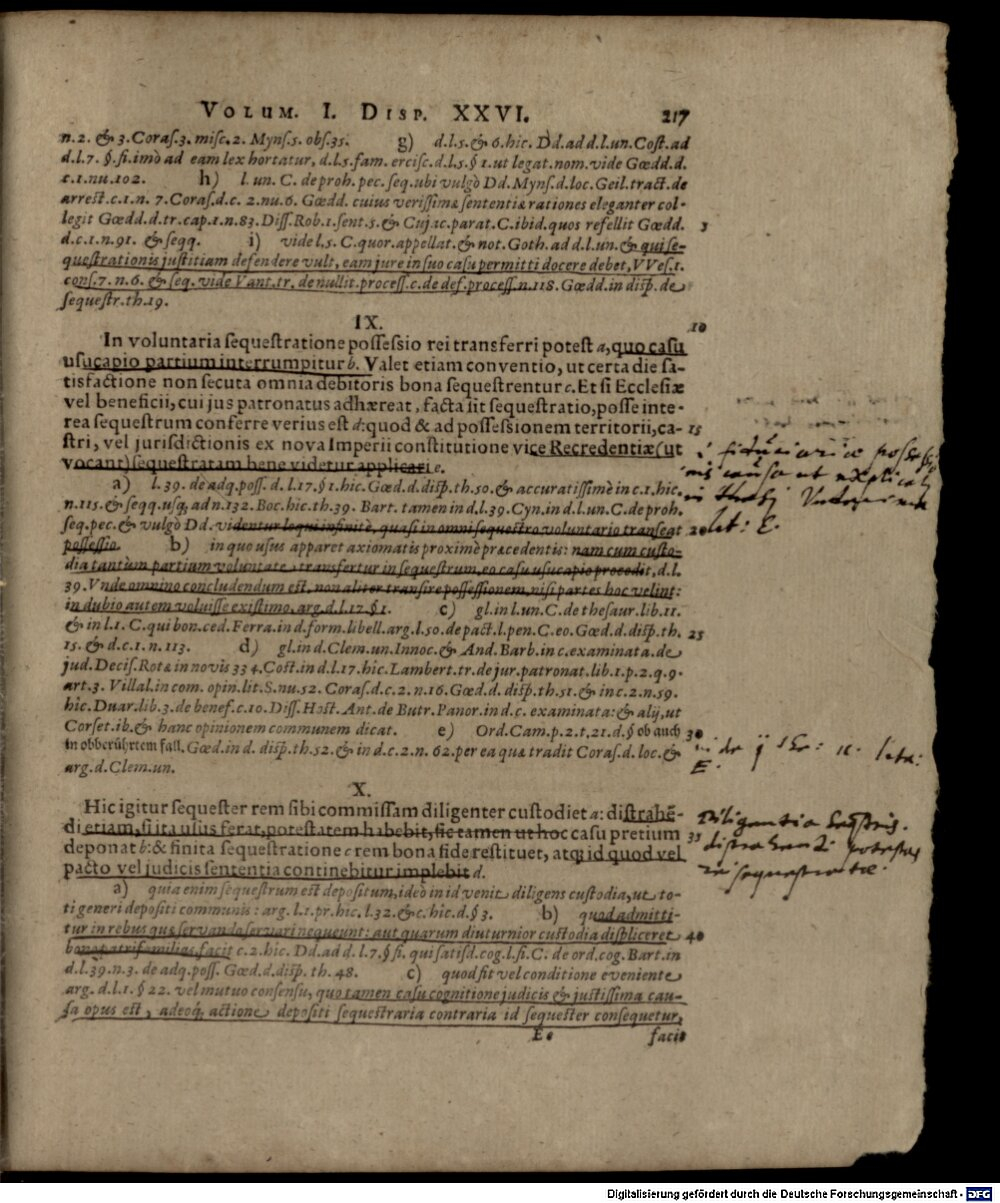 VOLUM. I. DISP. XXVI. 217
n.2. & 3. Coraſ.3. miſc.2. Mynſ.5. obſ.35. g) d.l.5.& 6.hic. Dd.ad d.l.un.Coſt.ad
d.l.7. §.fi.imò ad eam lex hortatur, d.l.5.fam. erciſc.d.l.5.§ 1.ut legat.nom.vide Gœdd.d.
c.1.nu.102. h) l.un. C. de proh. pec. ſeq.ubi vulgò Dd.Mynſ.d.loc.Geil.tract.de
arreſt.c.1.n. 7.Coraſ.d.c. 2.nu.6. Gœdd. cuius veriſſimæ ſententiæ rationes eleganter col-
legit Gœdd.d.tr.cap.1.n.83. Diſſ.Rob.1.ſent.5.& Cuj.ic.parat.C.ibid.quos refellit Gœdd. 5
d.c.1.n.91. & ſeqq. i) vide l.5. C.quor.appellat.& not. Goth. ad d.l.un.& qui ſe-
queſtrationis juſtitiam defendere vult, eam jure in ſuo caſu permitti docere debet, VVeſ.1.
conſ.7.n.6. & ſeq. vide Vant.tr. de nullit.proceſſ.c.de def.proceſſ.n.118. Gœdd.in diſp. de
ſequeſtr.th.19.
IX. 10
In voluntaria ſequeſtratione poſſeſſio rei transferri poteſt a, quo caſu
uſucapio partium interrumpitur b. Valet etiam conventio, ut certa die ſa-
tisfactione non ſecuta omnia debitoris bona ſequeſtrentur c. Et ſi Eccleſiæ
vel beneficii, cui jus patronatus adhæreat, facta ſit ſequeſtratio, poſſe inte-
rea ſequeſtrum conferre verius eſt d: quod & ad poſſeſſionem territorii, ca- 15
ſtri, vel jurisdictionis ex nova Imperii conſtitutione vice Recredentiæ (ut
vocant) ſequeſtratam bene videtur applicari e.
a) l.39. de adq.poſſ. d.l.17.§ 1.hic. Gœd.d.diſp.th.50.& accuratiſſimè in c.1.hic.
n.115.& ſeqq.uſq, ad n.132. Boc.hic.th.39. Bart. tamen in d.l.39.Cyn.in d.l.un.C.de proh.
ſeq.pec.& vulgò Dd.videntur loqui infinitè, quaſi in omni ſequeſtro voluntario tranſeat 20
poſſeſſio. b) in quo uſus apparet axiomatis proximè præcedentis: nam cum cuſto-
dia tantùm partium voluntate transfertur in ſequeſtrum, eo caſu uſucapio procedit, d.l.
39. Vnde omnino concludendum eſt, non aliter tranſire poſſeſſionem, niſi partes hoc velint:
in dubio autem voluiſſe exiſtimo, arg.d.l.17.§ 1. c) gl.in l.un.C.de theſaur.lib.11.
& in l.1. C.qui bon.ced.Ferra.in d.form.libell.arg.l.50.de pact.l.pen.C.eo.Gœd.d.diſp.th. 25
15. & d.c.1.n.113. d) gl.in d.Clem.un.Innoc.& And.Barb.in c.examinata.de
jud.Deciſ.Rotæ in novis 334.Coſt.in d.l.17.hic.Lambert.tr.de jur.patronat.lib.1.p.2.q.9.
art.3. Villal.in com. opin.lit.S.nu.52. Coraſ.d.c.2.n.16.Gœd.d. diſp.th.51.& in c.2.n.59.
hic.Duar.lib.3.de benef.c.10.Diſſ.Hoſt.Ant.de Butr.Panor.in d.c. examinata: & alij, ut
Corſet.ib.& hanc opinionem communem dicat. e) Ord.Cam.p.2.t.21.d.§ ob auch 30
in obberührtem fall. Gœd.in d. diſp.th.52.& in d.c.2.n.62.per ea quæ tradit Coraſ.d.loc.&
arg.d.Clem.un.
X.
Hic igitur ſequeſter rem ſibi commiſſam diligenter cuſtodiet a: diſtrahē-
di etiam, ſi ita uſus ferat, poteſtatem habebit, ſic tamen ut hoc caſu pretium 35
deponat b: & finita ſequeſtratione c rem bona fide reſtituet, atq; id quod vel
pacto vel judicis ſententia continebitur implebit d.
a) quia enim ſequeſtrum eſt depoſitum, ideò in id venit diligens cuſtodia, ut to-
ti generi depoſiti communis: arg.l.1.pr.hic.l.32.&c.hic.d.§ 3. b) quod admitti-
tur in rebus quæ ſervando ſervari nequeunt: aut quarum diuturnior cuſtodia diſpliceret 40
bono patrifamilias, facit c.2.hic. Dd.ad d.l.7.§ fi. qui ſatiſd.cog.l.fi.C. de ord.cog.Bart.in
d.l.39.n.3. de adq.poſſ. Gœd.d.diſp. th. 48. c) quod fit vel conditione eveniente
arg. d.l.1. § 22. vel mutuo conſenſu, quo tamen caſu cognitione judicis & juſtiſſima cau-
ſa opus eſt, adeoq; actione depoſiti ſequeſtraria contraria id ſequeſter conſequetur,
Ee facit
i fiduciariæ posseſsio
nis causa ut explicat
lit: E.
E.
Diligentia
distrahendi potestas
in sequestratore.
Digitalisierung gefördert durch die Deutsche Forschungsgemeinschaft - DFG